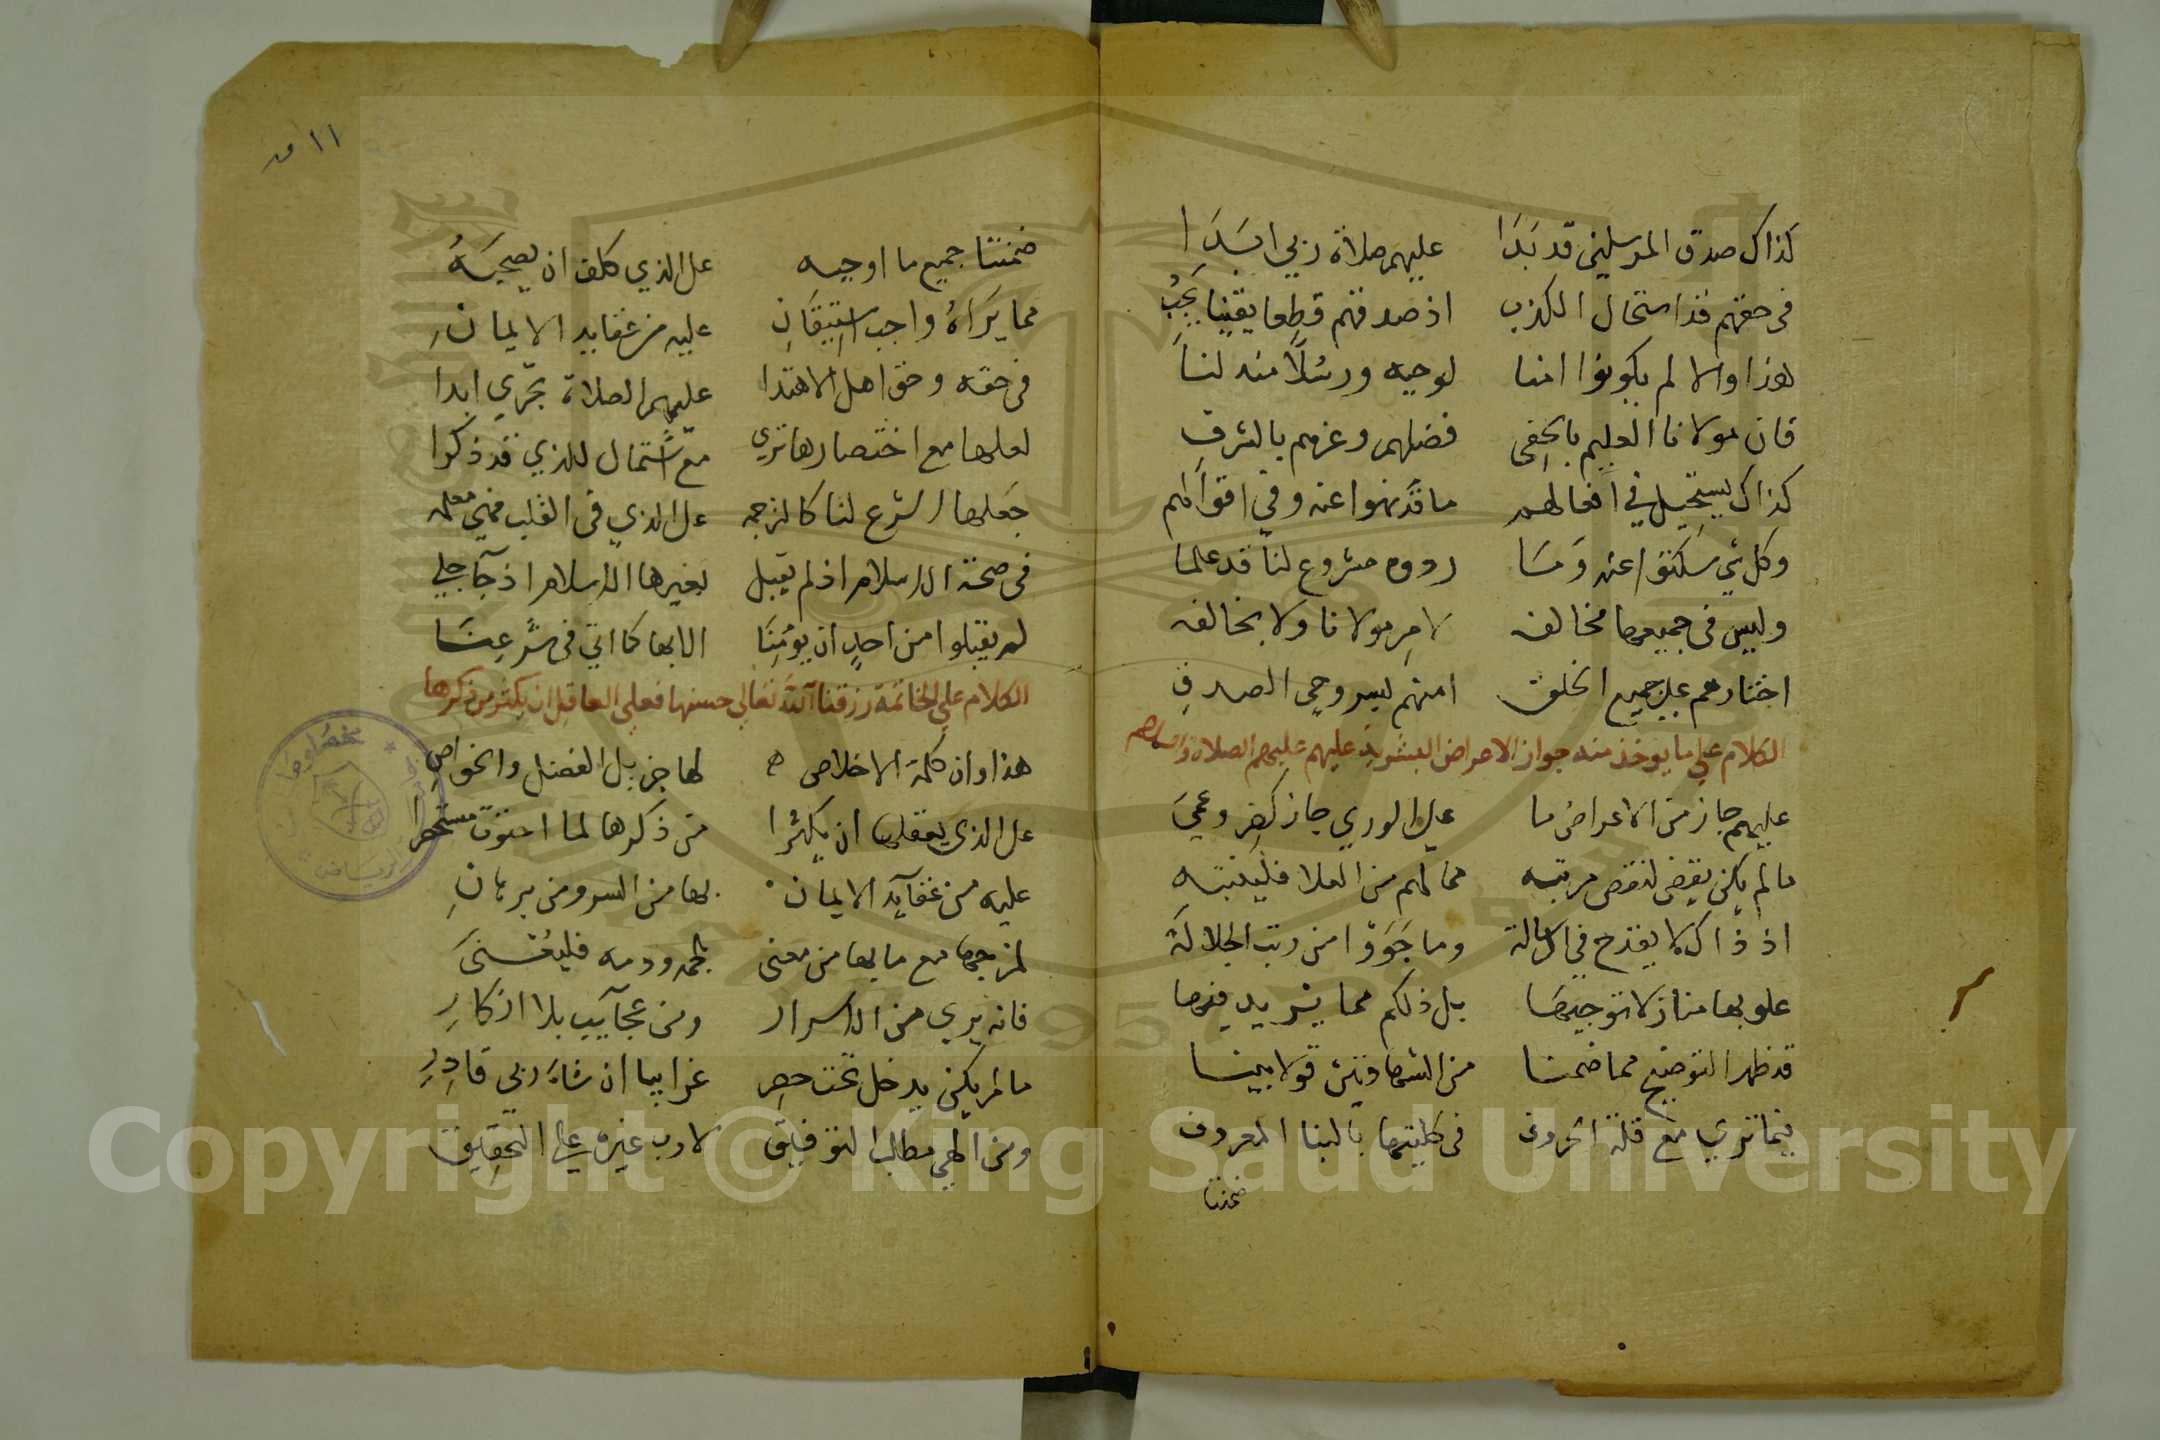 كذاك صدق المرسلين قد بدا عليهم صلاة ربي ابدا
في حقهم قد استحال الكذب اذ صدقهم قطعا يقينا يجب
هذا والا لم يكونوا امنا لوحيه ورسلا منه لنا
فان مولانا العليم بالخفي فضلهم وعزهم بالشرف
كذاك يستحيل في افعالهم ما قد نهوا عنه وفي اقوالهم
وكل شي سكتوا عنه وما رووه مشروع لنا قد علما
وليس في جميعها مخالفه لامر مولانا ولا يخالفه
اختارهم على جميع الخلق امنهم لسر وحي الصدق
الكلام على ما يوخذ منه جواز الاعراض البشرية عليهم عليهم الصلاة والسلام
عليهم جاز من الاعراض ما على الوري جاز كفر وعمي
ما لم يكن يقضي لنقص مرتبه مما لهم من العلا فلينتبه
اذ ذاك لا يقدح في الرسالة وما حووا من رتب الجلالة
علو بها منازلا توجيها بل ذلكم مما يزيد فيها
قد ظهر التوضيح مما ضمنا من الشهادتين قولا بينا
فيما تري مع قلة الحروف في كلمتيها بالبنا المعروف
ضمنتا
١١ ق
ضمنتا جميع ما اوجبه على الذي كلف ان يصحبه
مما يراه واجب استيقان عليه من عقايد الايمان
في حقه وحق اهل الاهتدا عليهم الصلاة تجري ابدا
لعلها مع اختصارها تري مع اشتمال للذي قد ذكرا
جعلها الشرع لنا كالترجمه على الذي في القلب فهي معلمه
في صحة الاسلام اذ لم يقبل بغيرها الاسلام اذ جا جلي
لم يقبلوا من احد ان يومنا الا بها كما اتي في شرعنا
الكلام على الخاتمة رزقنا الله تعالى حسنها فعلى العاقل ان يكثر من ذكرها
هذا وان كلمة الاخلاص لها جزيل الفضل والخواص
على الذي يعقلها ان يكثرا من ذكرها لما احتوت مستحضرا
عليه من عقايد الايمان بها من السر ومن برهان
لمزجها مع ما بها من معني بلحمه ودمه فليعتني
فانه يري من الاسرار ومن عجايب بلا انكار
ما لم يكن يدخل تحت حصر غرايبا ان شاء ربي قادر
ومن الهي مطلب التوفيق لا رب غيره على التحقيق
Copyright © King Saud University
1957